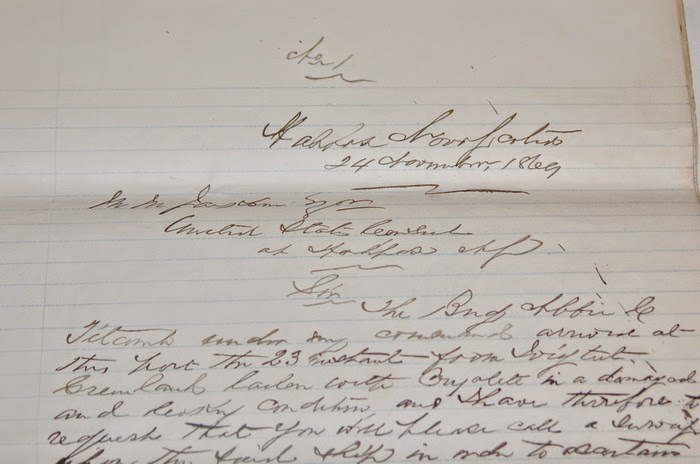 No 1
Halifax Nova Scotia
24 November, 1869
M M Jackson Esqr
United States Consul
at Halifax NS
Sir The Brig Abbie C
Titcomb under my command arrived at
this port the 23 instant from Ivigtut
Greenland laden with Cryolite in a damaged
and leaky condition, and I have therefore to
request that you will please call a survey
upon the said ship in order to ascertain